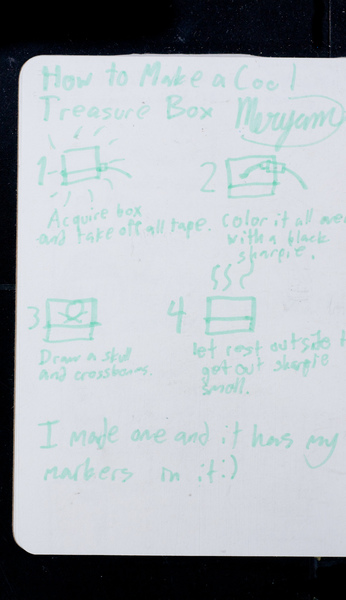 How to Make a Cool
Treasure Box Meryam
1
2
Acquire box
and take off all tape.
Color it all over
with a black
sharpie.
3
4
Draw a skull
and crossbones.
let rest outside
get out sharpie
smell.
I made one and it has my
markers in it:)